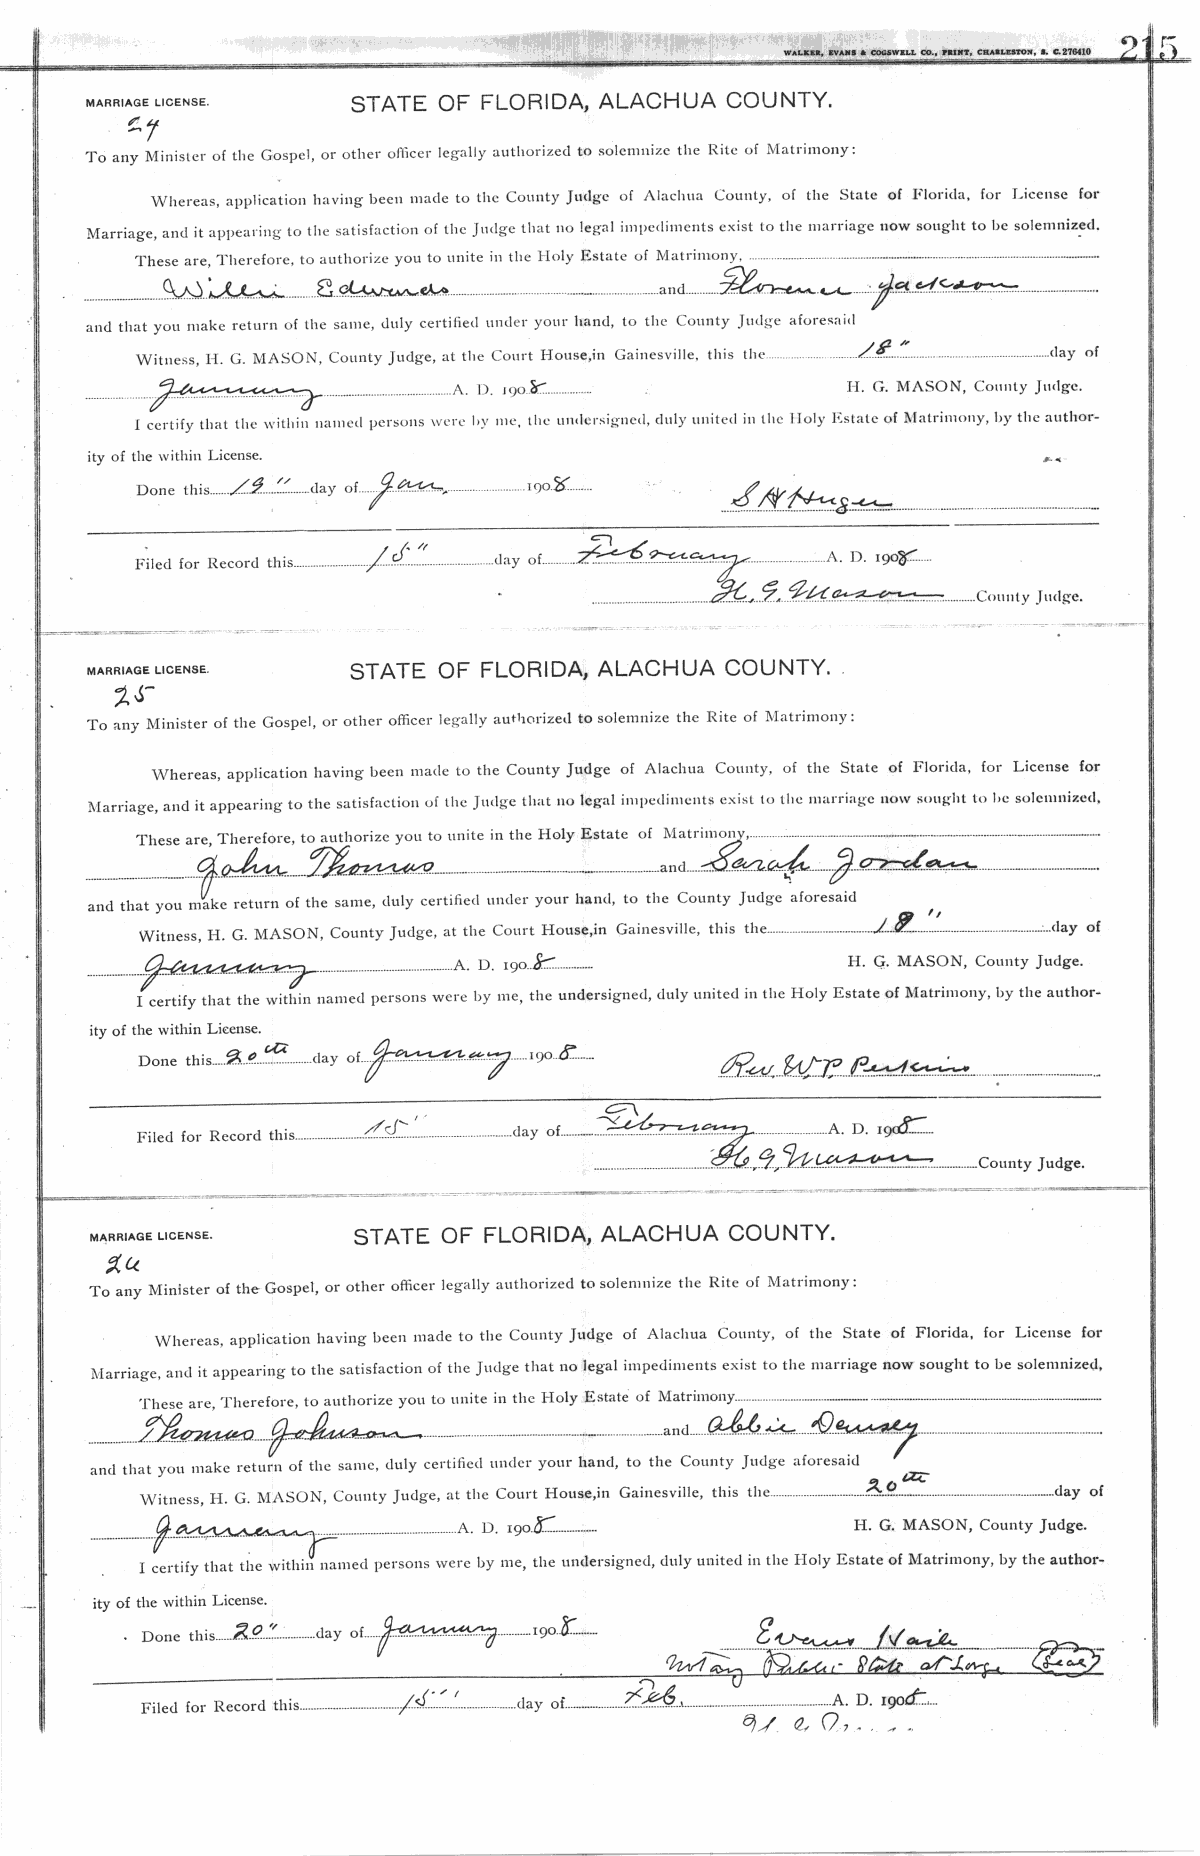 WALKER, EVANS & COGSWELL CO., PRINT, CHARLESTON, S. C. 276410 215
MARRIAGE LICENSE. STATE OF FLORIDA, ALACHUA COUNTY.
24
To any Minister of the Gospel, or other officer legally authorized to solemnize the Rite of Matrimony:
Whereas, application having been made to the County Judge of Alachua County, of the State of Florida, for License for
Marriage, and it appearing to the satisfaction of the Judge that no legal impediments exist to the marriage now sought to be solemnized.
These are, Therefore, to authorize you to unite in the Holy Estate of Matrimony,
Willie Edwards and Florence Jackson
and that you make return of the same, duly certified under your hand, to the County Judge aforesaid
Witness, H. G. MASON, County Judge, at the Court House,in Gainesville, this the 18" day of
January A. D. 1908 H. G. MASON, County Judge.
I certify that the within named persons were by me, the undersigned, duly united in the Holy Estate of Matrimony, by the author-
ity of the within License.
Done this 19" day of Jan. 1908 S H Huger
Filed for Record this 15" day of February A. D. 1908
H. G. Mason County Judge.
MARRIAGE LICENSE. STATE OF FLORIDA, ALACHUA COUNTY.
25
To any Minister of the Gospel, or other officer legally authorized to solemnize the Rite of Matrimony:
Whereas, application having been made to the County Judge of Alachua County, of the State of Florida, for License for
Marriage, and it appearing to the satisfaction of the Judge that no legal impediments exist to the marriage now sought to be solemnized,
These are, Therefore, to authorize you to unite in the Holy Estate of Matrimony,
John Thomas and Sarah Jordan
and that you make return of the same, duly certified under your hand, to the County Judge aforesaid
Witness, H. G. MASON, County Judge, at the Court House,in Gainesville, this the 18" day of
January A. D. 1908 H. G. MASON, County Judge.
I certify that the within named persons were by me, the undersigned, duly united in the Holy Estate of Matrimony, by the author-
ity of the within License.
Done this 20th day of January 1908 Rev. W. P. Perkins
Filed for Record this 15" day of February A. D. 1908
H. G. Mason County Judge.
MARRIAGE LICENSE. STATE OF FLORIDA, ALACHUA COUNTY.
26
To any Minister of the Gospel, or other officer legally authorized to solemnize the Rite of Matrimony:
Whereas, application having been made to the County Judge of Alachua County, of the State of Florida, for License for
Marriage, and it appearing to the satisfaction of the Judge that no legal impediments exist to the marriage now sought to be solemnized,
These are, Therefore, to authorize you to unite in the Holy Estate of Matrimony
Thomas Johnson and Abbie Demsey
and that you make return of the same, duly certified under your hand, to the County Judge aforesaid
Witness, H. G. MASON, County Judge, at the Court House,in Gainesville, this the 20th day of
January A. D. 1908 H. G. MASON, County Judge.
I certify that the within named persons were by me, the undersigned, duly united in the Holy Estate of Matrimony, by the author-
ity of the within License.
Done this 20" day of January 1908 Evans Haile
Notary Public State at Large (Seal)
Filed for Record this 15" day of Feb. A. D. 1908